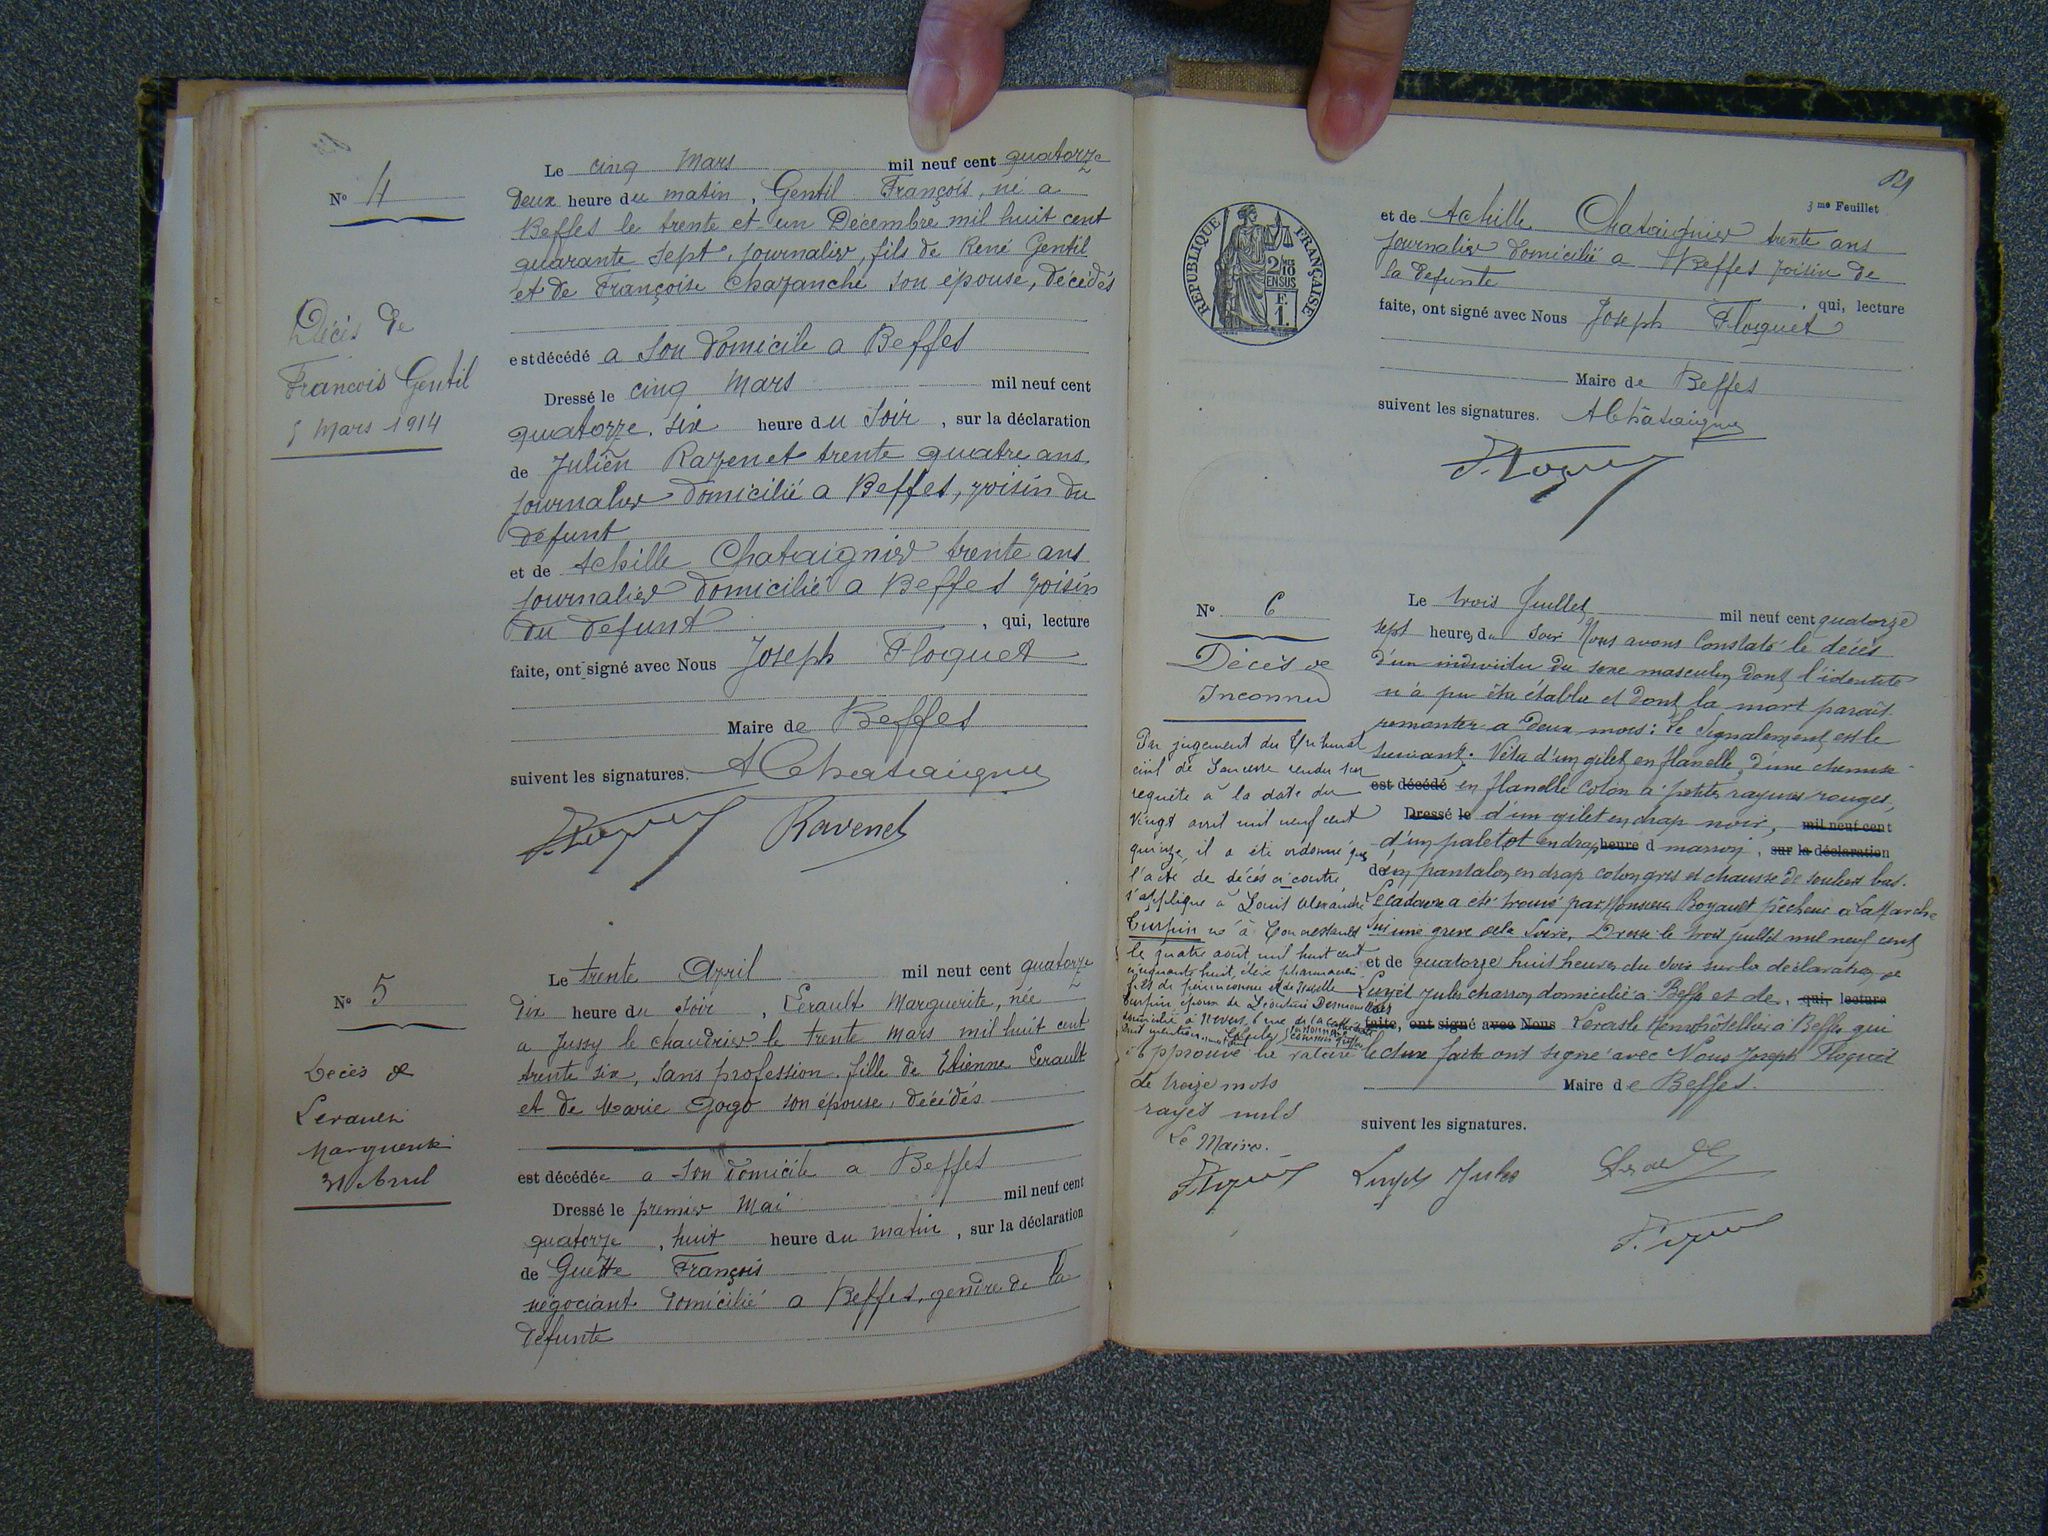 Nº 4
Décès de
François Gentil
5 Mars 1914
Le cinq Mars mil neuf cent quatorze
Deux heure du matin, Gentil François, né a
Beffes le trente et un Décembre mil huit cent
quarante sept, journalier, fils de René Gentil
et de Françoise Chazanche son épouse, décédés
est décédé a son domicile a Beffes
Dressé le cinq Mars mil neuf cent
quatorze, six heure du soir, sur la déclaration
de Julien Ravenet trente quatre ans
journalier domicilié a Beffes, voisin du
défunt
et de Achille Chataignier trente ans
journalier domicilié a Beffes voisin
du défunt, qui, lecture
faite, ont signé avec Nous Joseph Floquet
Maire de Beffes
suivent les signatures. A Chataignier
J. Floquet Ravenet
Nº 5
Décès de
Lerault
Marguerite
31 Avril
Le trente Avril mil neuf cent quatorze
dix heure du soir, Lerault Marguerite, née
a Jussy le chaudrier le trente Mars mil huit cent
trente six, sans profession, fille de Etienne Lerault
et de Marie Gogo son épouse, décédés
est décédée a son domicile a Beffes
Dressé le premier Mai mil neuf cent
quatorze, huit heure du matin, sur la déclaration
de Guette François
négociant domicilié a Beffes, gendre de la
défunte
3me Feuillet
RÉPUBLIQUE FRANÇAISE
2/10 EN SUS
F. 1.
et de Achille Chataignier trente ans
journalier domicilié a Beffes voisin de
la defunte, qui, lecture
faite, ont signé avec Nous Joseph Floquet
Maire de Beffes
suivent les signatures. A Chataignier
J. Floquet
Nº 6
Décès de
Inconnu
Par jugement du tribunal
civil de Sancerre rendu sur
requête à la date du
vingt avril mil neuf cent
quinze, il a été ordonné que
l'acte de décès ci-contre,
s'applique à Louis Alexandre
Turpin né à
le quatre août mil huit cent
cinquante huit, élève pharmacien
fils de père inconnu et de
Turpin époux de
domicilié à Nevers, 6 rue de la
Approuvé la rature
de treize mots
rayés nuls
Le Maire.
J. Floquet
Le trois Juillet mil neuf cent quatorze
sept heures du soir Nous avons constaté le décès
d'un individu du sexe masculin dont l'identité
n'a pu être établie et dont la mort paraît
remonter a deux mois: le signalement est le
suivant: Vêtu d'un gilet en flanelle, d'une chemise
est décédé en flanelle coton a petites rayures rouges,
Dressé le d'un gilet en drap noir, mil neuf cent
d'un paletot en drap heure d marron, sur la déclaration
de un pantalon en drap coton gris et chaussé de souliers bas.
Le cadavre a été trouvé par Monsieur Boyault pêcheur a La Marche
sur une grève de la Loire, Dressé le trois juillet mil neuf cent
et de quatorze huit heures du soir sur la déclaration de
Luyel Jules charron domicilié a Beffes et de, qui, lecture
faite, ont signé avec Nous Lerasle Henri hôtellier a Beffes qui
lecture faite ont signé avec Nous Joseph Floquet
Maire de Beffes.
suivent les signatures.
Luyel Jules
J. Floquet